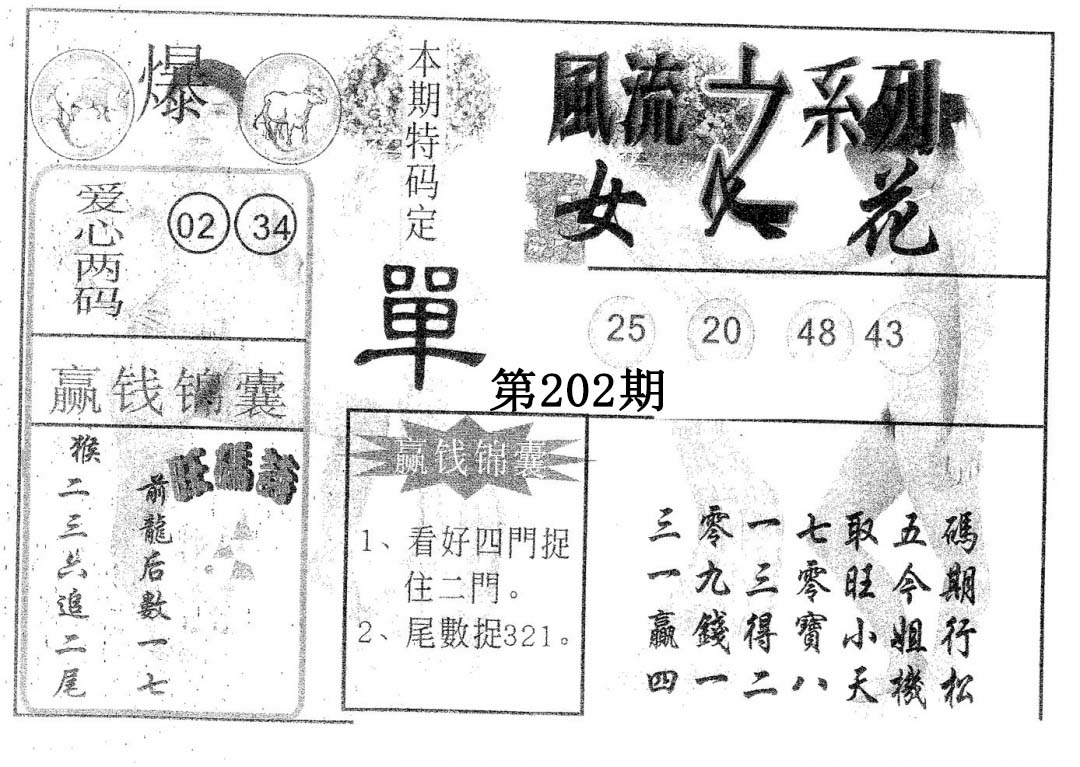 爆
爱心两码
02 34
赢钱锦囊
旺碼詩
前龍后數一七
猴二三六追二尾
本期特码定
單
第202期
赢钱锦囊
1、看好四門捉
住二門。
2、尾數捉321。
風流女人花之系列
25 20 48 43
三零一七取五碼
一九三零旺今期
贏錢得寶小姐行
四一二八天機松